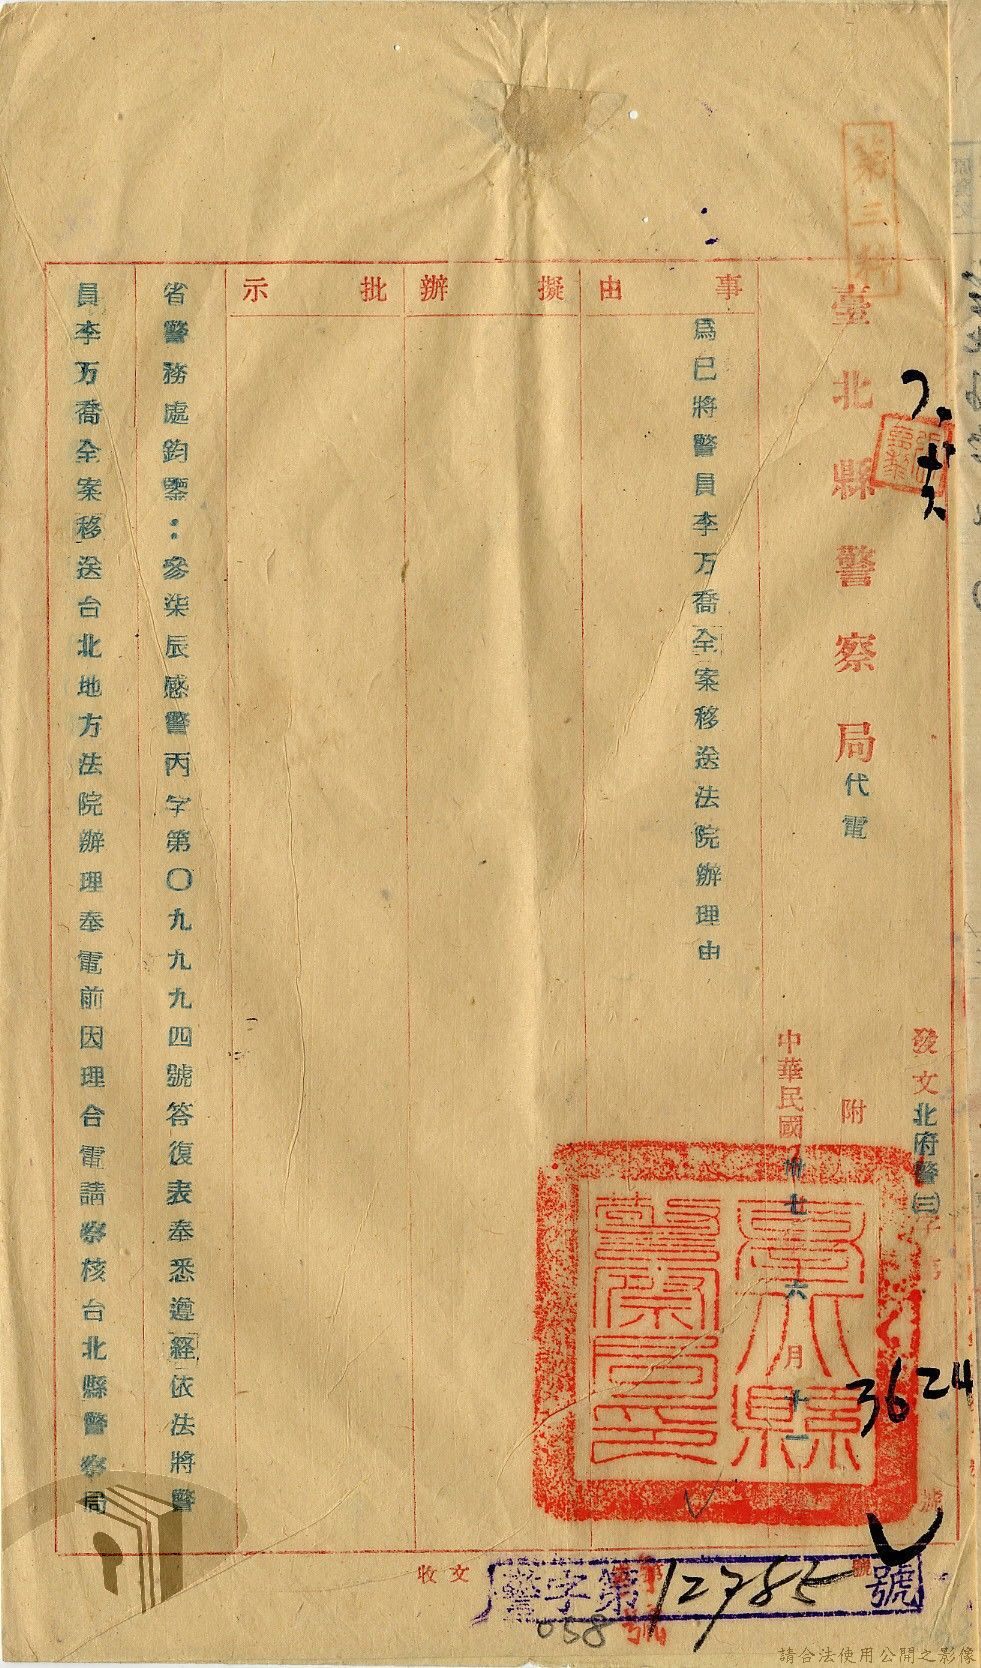 第三科
臺北縣警察局代電
發文北府警㈢字第3624號
附
中華民國卅七 六月十一
臺北縣警察局印
事由
為已將警員李万喬全案移送法院辦理由
擬辦
批示
省警務處鈞鑒:參柒辰感警丙字第〇九九九四號答復表奉悉遵經依法將警
員李万喬全案移送台北地方法院辦理奉電前因理合電請察核台北縣警察局
收文 字第 號
警字第12785號
058
請合法使用公開之影像